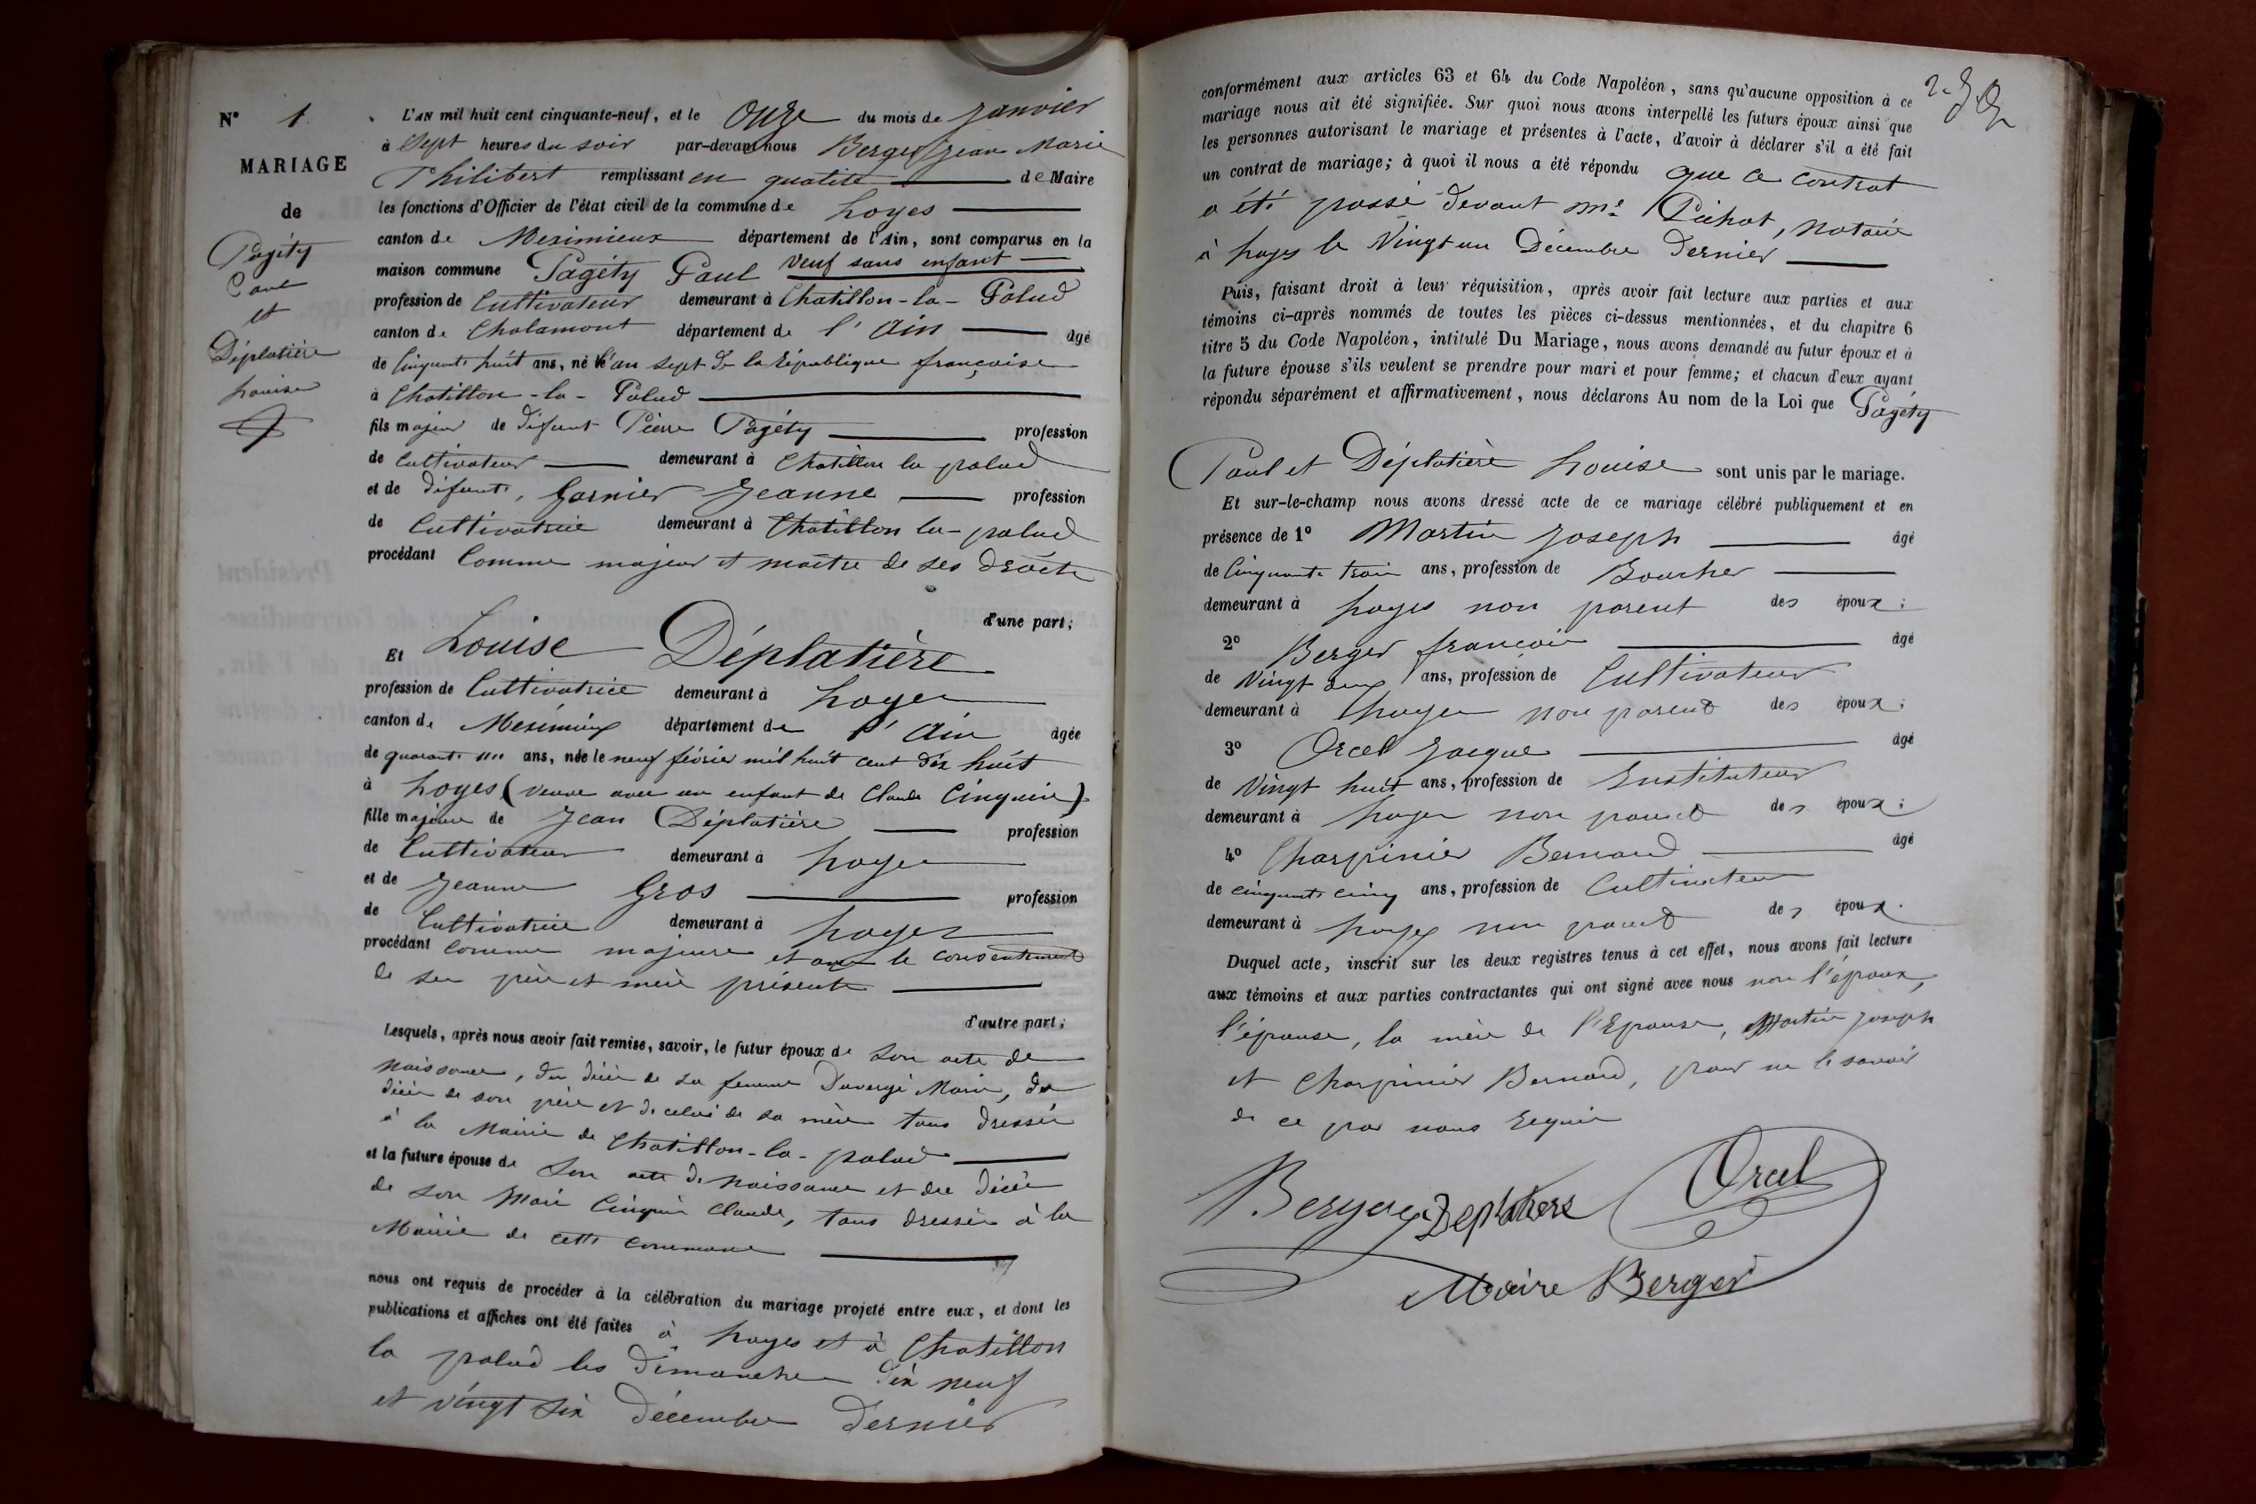 N° 1
MARIAGE
de
Pagéty
Paul
et
Déplatière
Louise
L'AN mil huit cent cinquante-neuf, et le Onze du mois de Janvier
à Sept heures du soir par-devant nous Berger Jean Marie
Philibert remplissant en qualité de Maire
les fonctions d'Officier de l'état civil de la commune de Loyes
canton de Meximieux département de l'Ain, sont comparus en la
maison commune Pagéty Paul veuf sans enfant
profession de Cultivateur demeurant à Chatillon-la-Palud
canton de Chalamont département de l'Ain âgé
de Cinquante huit ans, né l'an sept de la République française
à Chatillon-la-Palud
fils majeur de défunt Pierre Pagéty profession
de Cultivateur demeurant à Chatillon la palud
et de défunte, Garnier Jeanne profession
de Cultivatrice demeurant à Chatillon la-palud
procédant Comme majeur et maître de ses droits
d'une part;
Et Louise Déplatière
profession de Cultivatrice demeurant à Loyes
canton de Meximieux département de l'Ain âgée
de quarante ans, née le neuf février mil huit cent dix huit
à Loyes (veuve avec un enfant de Claude Cinquin)
fille majeure de Jean Déplatière profession
de Cultivateur demeurant à Loyes
et de Jeanne Gros profession
de Cultivatrice demeurant à Loyes
procédant comme majeure et avec le consentement
de ses père et mère présents
d'autre part;
Lesquels, après nous avoir fait remise, savoir, le futur époux de son acte de
naissance, du décès de sa femme Duvergé Marie, du
décès de son père et de celui de sa mère tous dressés
à la Mairie de Chatillon-la-palud
et la future épouse de son acte de naissance et du décès
de son mari Cinquin Claude, tous dressés à la
Mairie de cette commune
nous ont requis de procéder à la célébration du mariage projeté entre eux, et dont les
publications et affiches ont été faites à Loyes et à Chatillon
la palud les dimanches dix neuf
et vingt six décembre dernier
conformément aux articles 63 et 64 du Code Napoléon, sans qu'aucune opposition à ce
mariage nous ait été signifiée. Sur quoi nous avons interpellé les futurs époux ainsi que
les personnes autorisant le mariage et présentes à l'acte, d'avoir à déclarer s'il a été fait
un contrat de mariage; à quoi il nous a été répondu que ce contrat
a été passé devant Me Pichat, notaire
à Loyes le Vingt un Décembre dernier
Puis, faisant droit à leur réquisition, après avoir fait lecture aux parties et aux
témoins ci-après nommés de toutes les pièces ci-dessus mentionnées, et du chapitre 6
titre 5 du Code Napoléon, intitulé Du Mariage, nous avons demandé au futur époux et à
la future épouse s'ils veulent se prendre pour mari et pour femme; et chacun d'eux ayant
répondu séparément et affirmativement, nous déclarons Au nom de la Loi que Pagéty
Paul et Déplatière Louise sont unis par le mariage.
Et sur-le-champ nous avons dressé acte de ce mariage célébré publiquement et en
présence de 1° Martin Joseph âgé
de Cinquante trois ans, profession de Boucher
demeurant à Loyes non parent des époux;
2° Berger françois âgé
de Vingt deux ans, profession de Cultivateur
demeurant à Loyes non parent des époux;
3° Orcel Jacque âgé
de Vingt huit ans, profession de Instituteur
demeurant à Loyes non parent des époux;
4° Charpinier Bernard âgé
de cinquante cinq ans, profession de Cultivateur
demeurant à Loyes non parent des époux.
Duquel acte, inscrit sur les deux registres tenus à cet effet, nous avons fait lecture
aux témoins et aux parties contractantes qui ont signé avec nous non l'époux,
l'épouse, la mère de l'Epouse, Martin Joseph
et Charpinier Bernard, pour ne le savoir
de ce par nous requis
Berger Deplatiere Orcel
Maire Berger